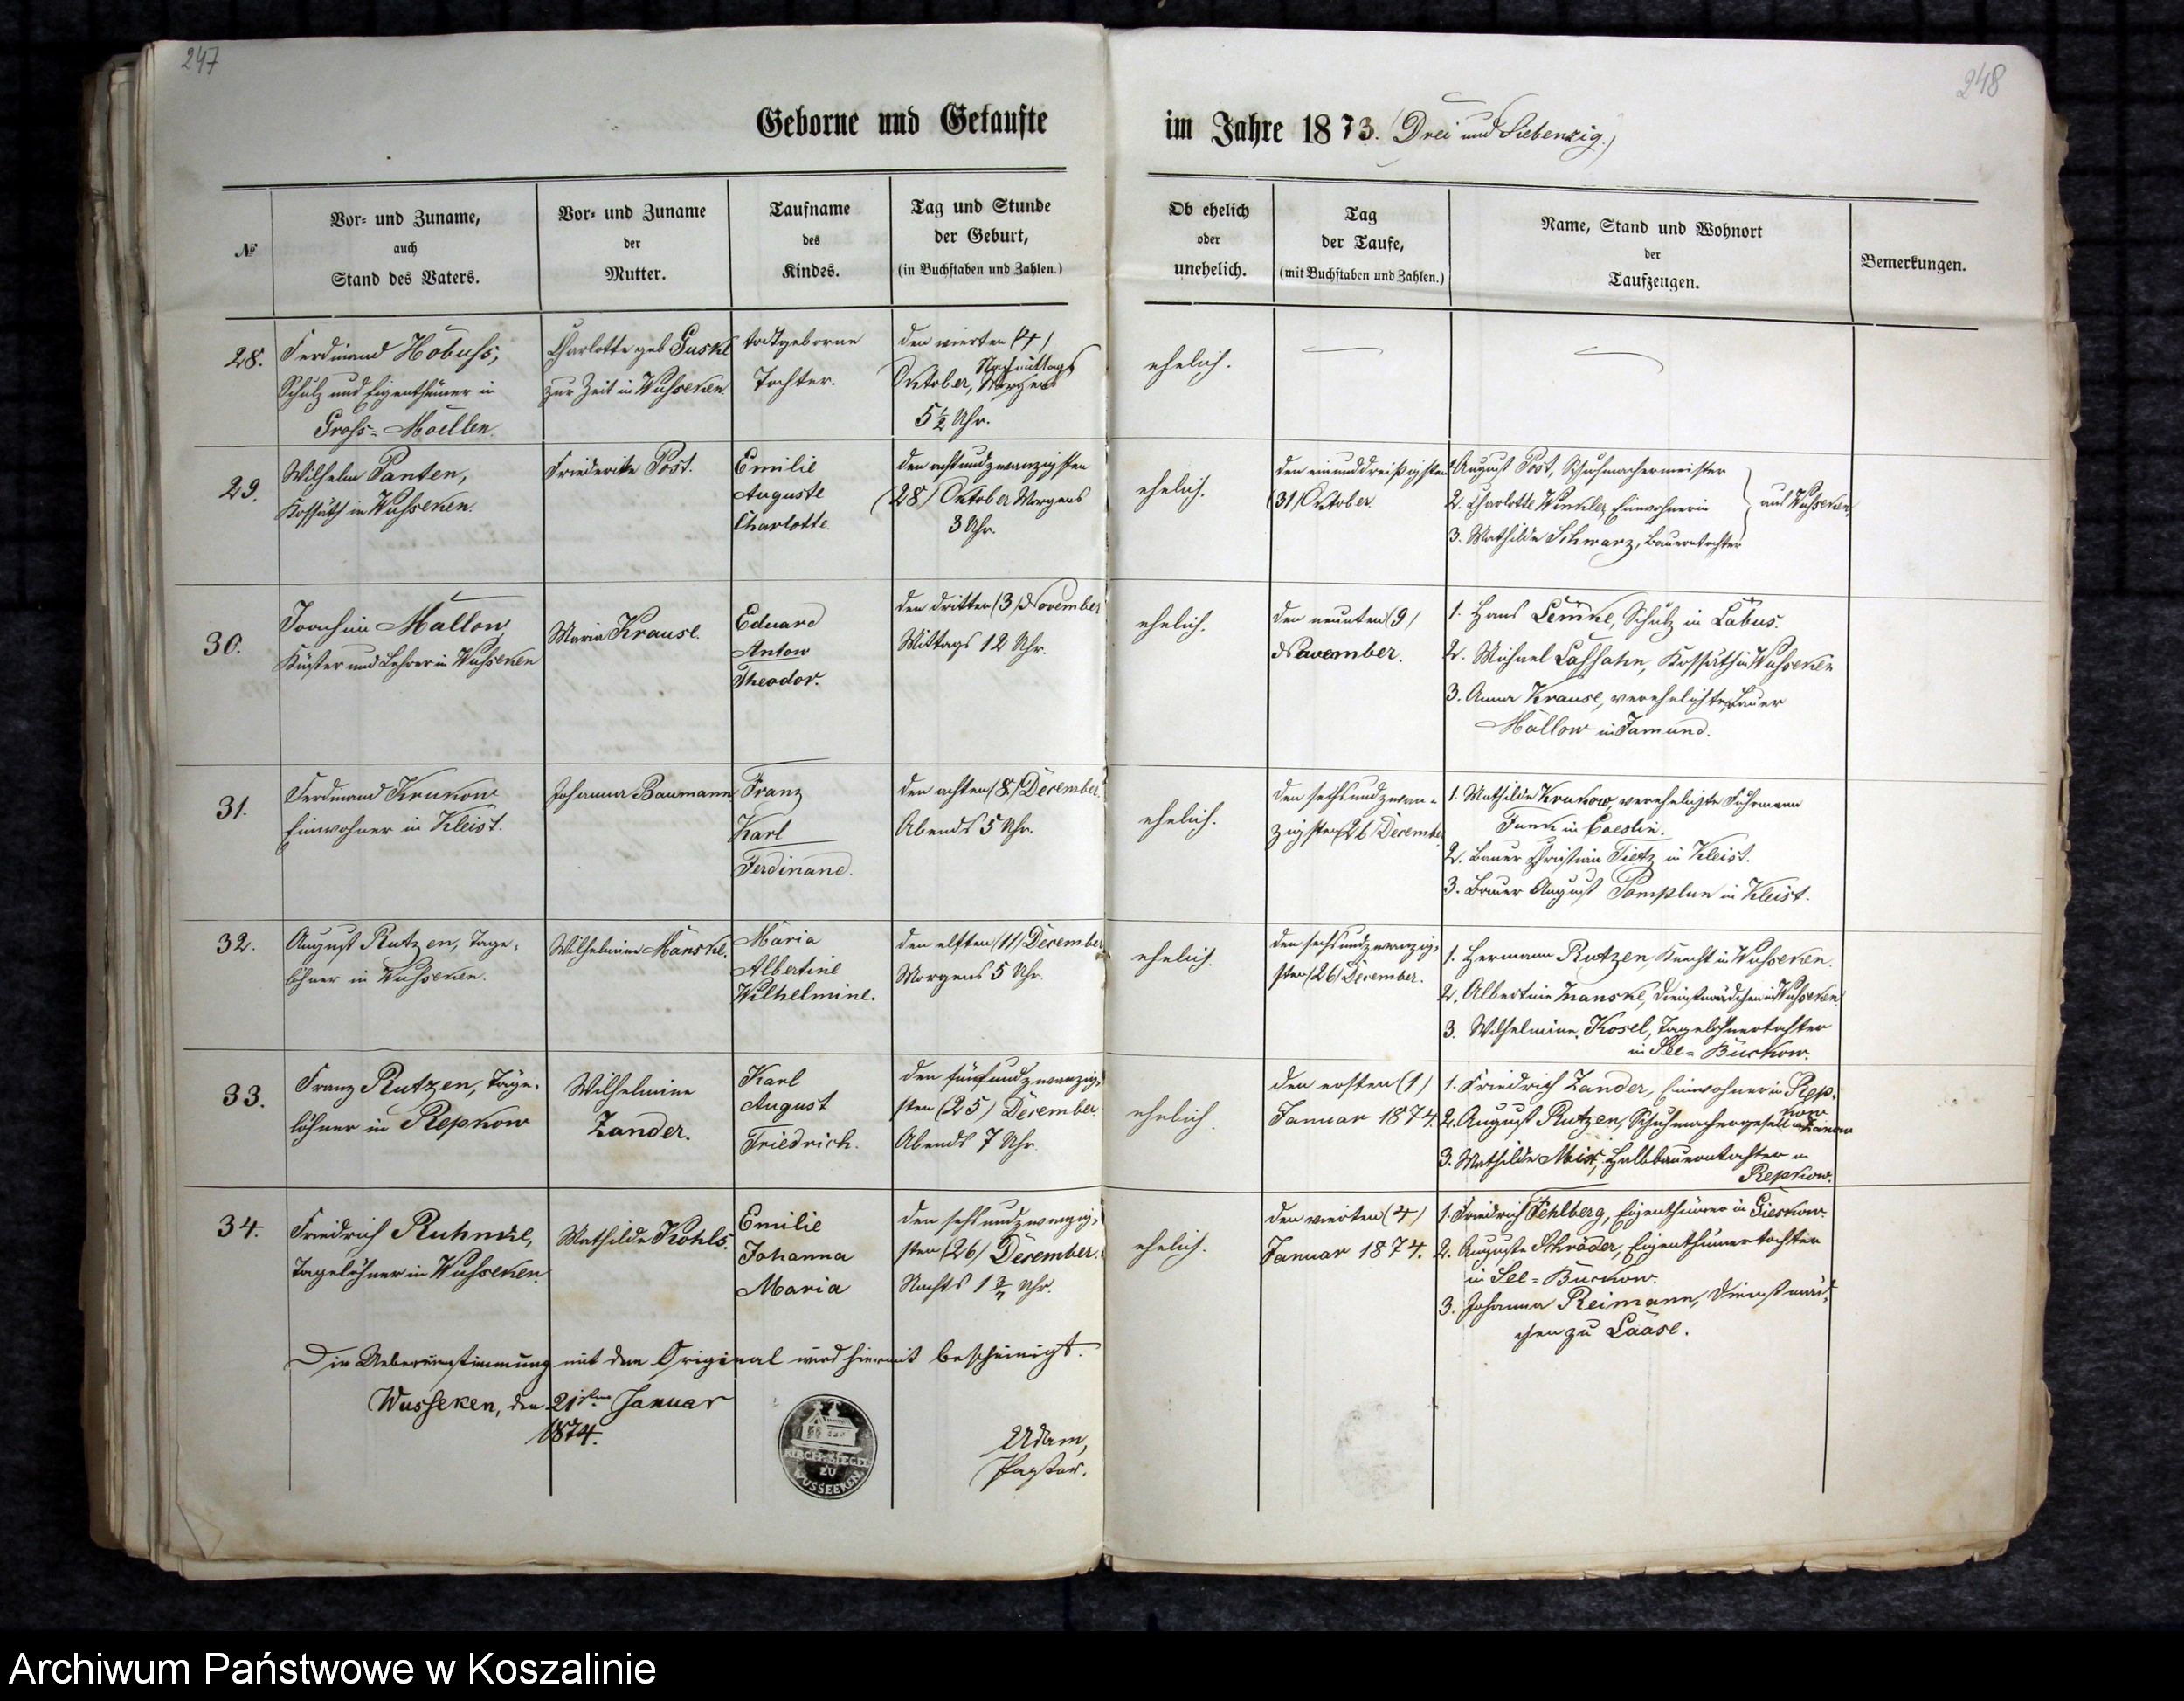 247
248
Geborne und Getaufte
im Jahre 1873. (Drei und Siebenzig.)
№
Vor- und Zuname,
auch
Stand des Vaters.
Vor- und Zuname
der
Mutter.
Taufname
des
Kindes.
Tag und Stunde
der Geburt,
(in Buchstaben und Zahlen.)
Ob ehelich
oder
unehelich.
Tag
der Taufe,
(mit Buchstaben und Zahlen.)
Name, Stand und Wohnort
der
Taufzeugen.
Bemerkungen.
28.
Ferdinand Hobuss,
Schulz und Eigenthümer in
Gross-Moellen.
Charlotte geb Guske
zur Zeit in Wusseken.
todtgeborne
Tochter.
den vierten (4)
Nachmittags
Oktober, Morgens
5½ Uhr.
ehelich.
29.
Wilhelm Panten,
Kossäth in Wusseken.
Friederike Post.
Emilie
Auguste
Charlotte.
den achtundzwanzigsten
(28) Oktober Morgens
3 Uhr.
ehelich.
den einunddreißigsten
(31) Oktober.
1. August Post, Schuhmachermeister
2. Charlotte Winkler, Einwohnerin
3. Mathilde Schwarz, Bauerntochter
aus Wusseken.
30.
Joachim Mallow,
Küster und Lehrer in Wusseken
Maria Krause.
Eduard
Anton
Theodor.
den dritten (3) November
Mittags 12 Uhr.
ehelich.
den neunten (9)
November.
1. Hans Lemke, Schulz in Labus.
2. Michael Lassahn, Kossäth in Wusseken
3. Anna Krause, verehelichte Bauer
Mallow in Jamund.
31.
Ferdinand Krukow
Einwohner in Kleist.
Johanna Baumann
Franz
Karl
Ferdinand.
den achten (8) December.
Abends 5 Uhr.
ehelich.
den sechsundzwan-
zigsten (26) December
1. Mathilde Krukow, verehelichte Fuhrmann
Funk in Coeslin.
2. Bauer Christian Tietz in Kleist.
3. Bauer August Pomplun in Kleist.
32.
August Rutzen, Tage-
löhner in Wusseken.
Wilhelmine Manske.
Maria
Albertine
Wilhelmine.
den elften (11) December
Morgens 5 Uhr.
ehelich.
den sechsundzwanzig-
sten (26) December.
1. Hermann Rutzen, Knecht in Wusseken.
2. Albertine Manske, Dienstmädchen in Wusseken.
3. Wilhelmine Kosel, Tagelöhnertochter
in See-Buckow.
33.
Franz Rutzen, Tage-
löhner in Repkow
Wilhelmine
Zander.
Karl
August
Friedrich.
den fünfundzwanzig-
sten (25) December.
Abends 7 Uhr.
ehelich.
den ersten (1)
Januar 1874.
1. Friedrich Zander, Einwohner in Rep-
kow
2. August Rutzen, Schuhmachergesell in
3. Mathilde Mix, Halbbauerntochter in
Repkow.
34.
Friedrich Ruhnke,
Tagelöhner in Wusseken.
Mathilde Kohls.
Emilie
Johanna
Maria
den sechsundzwanzig-
sten (26) December.
Nachts 1¾ Uhr.
ehelich.
den vierten (4)
Januar 1874.
1. Friedrich Fehlberg, Eigenthümer in Gieskow.
2. Auguste Schröder, Eigenthümertochter
in See-Buckow.
3. Johanna Reimann, Dienstmäd-
chen zu Laase.
Die Uebereinstimmung mit dem Original wird hiermit bescheinigt.
Wusseken, den 21sten Januar
1874.
KIRCHENSIEGEL
ZU
WUSSEKEN
Adam,
Pastor.
Archiwum Państwowe w Koszalinie